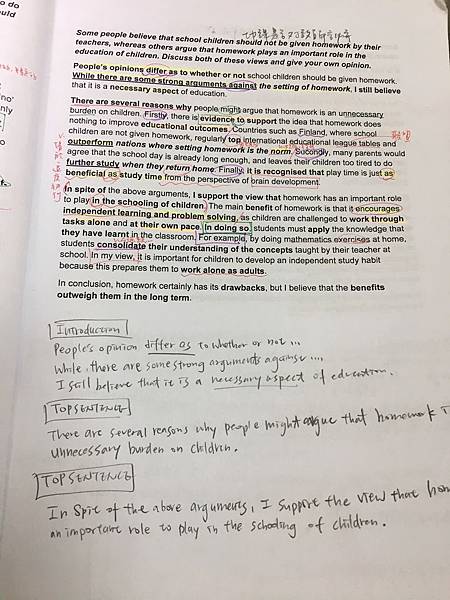 o do
ould
no'
nly
o
功課是否對教育部分
Some people believe that school children should not be given homework by their
teachers, whereas others argue that homework plays an important role in the
education of children. Discuss both of these views and give your own opinion.
People's opinions differ as to whether or not school children should be given homework.
While there are some strong arguments against the setting of homework, I still believe
that it is a necessary aspect of education.
There are several reasons why people might argue that homework is an unnecessary
burden on children. Firstly, there is evidence to support the idea that homework does
nothing to improve educational outcomes. Countries such as Finland, where school
children are not given homework, regularly top international educational league tables and
outperform nations where setting homework is the norm. Secondly, many parents would
agree that the school day is already long enough, and leaves their children too tired to do
further study when they return home. Finally, it is recognised that play time is just as
beneficial as study time from the perspective of brain development.
In spite of the above arguments, I support the view that homework has an important role
to play in the schooling of children. The main benefit of homework is that it encourages
independent learning and problem solving, as children are challenged to work through
tasks alone and at their own pace. In doing so, students must apply the knowledge that
they have learnt in the classroom. For example, by doing mathematics exercises at home,
students consolidate their understanding of the concepts taught by their teacher at
school. In my view, it is important for children to develop an independent study habit
because this prepares them to work alone as adults.
In conclusion, homework certainly has its drawbacks, but I believe that the benefits
outweigh them in the long term.
Introduction
People's opinion differ as to whether or not ...
While, there are some strong arguments against ....
I still believe that it is a necessary aspect of education.
TOPSENTENCE
There are several reasons why people might argue that homework
unnecessary burden on children.
TOPSENTENCE
In spit of the above arguments, I support the view that hom
an important role to play in the schooling of children.